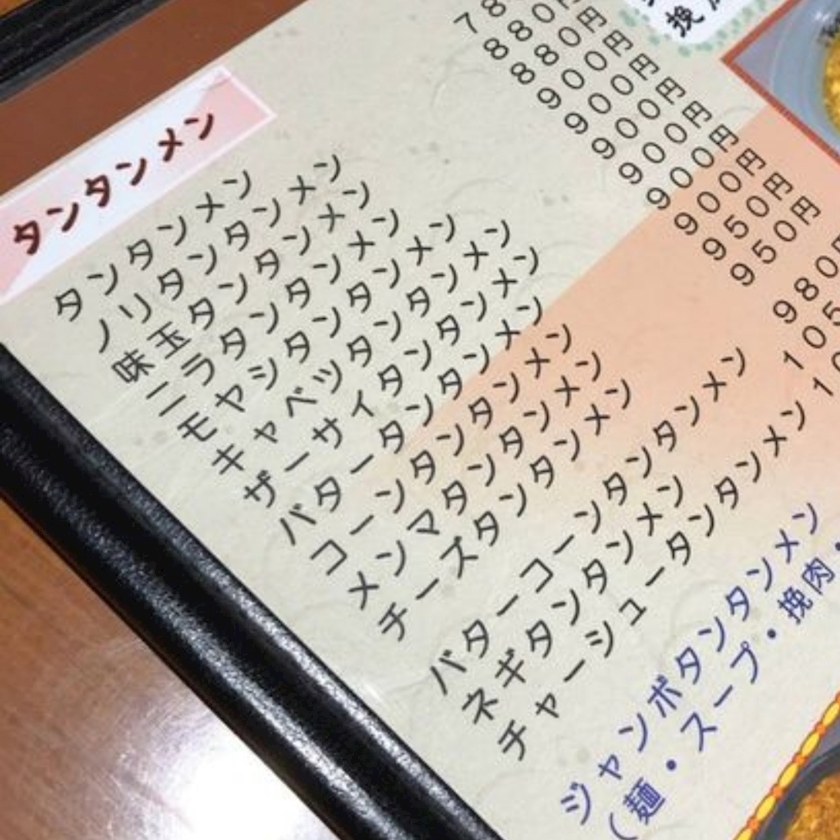 タンタンメン
タンタンメン 78
ノリタンタンメン 880円
味玉タンタンメン 880円
ニラタンタンメン 900円
モヤシタンタンメン 900円
キャベツタンタンメン 900円
ザーサイタンタンメン 900円
バタータンタンメン 900円
コーンタンタンメン 900円
メンマタンタンメン 950円
チーズタンタンメン 950円
バターコーンタンタンメン 980
ネギタンタンメン 105
チャーシュータンタンメン 10
ジャンボタンタンメン
(麺・スープ・挽肉・